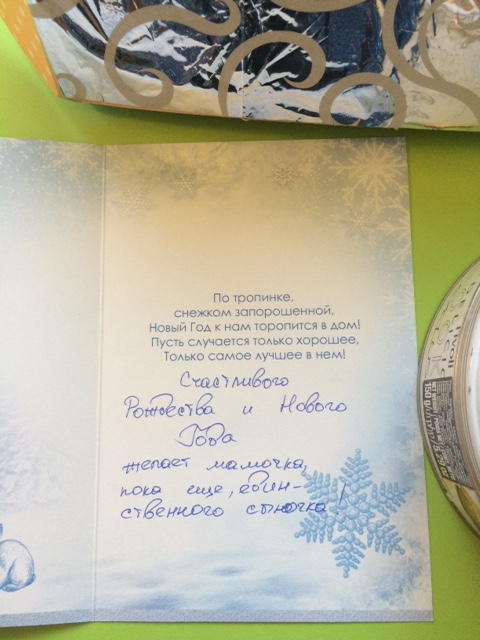 По тропинке,
снежком запорошенной,
Новый Год к нам торопится в дом!
Пусть случается только хорошее,
Только самое лучшее в нем!
Счастливого
Рождества и Нового
Года
желает мамочка,
пока еще, един-
ственного сыночка!
150 g